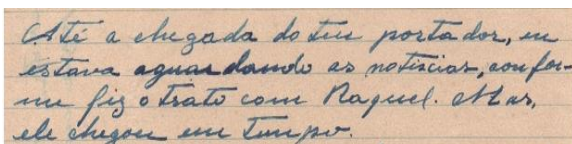 Até a chegada do teu portador, eu
estava aguardando as notiscias, confor-
me fiz o trato com Raquel. Mas,
ele chegou em tempo.